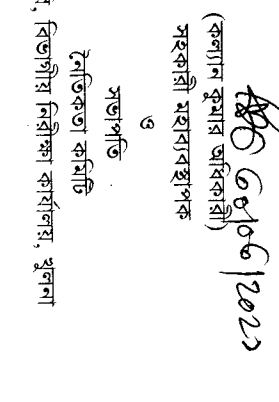 ০৮/০৬/২০২১
(কল্যান কুমার অধিকারী)
সহকারী মহাব্যবস্থাপক
ও
সভাপতি
নৈতিকতা কমিটি
বিভাগীয় নিরীক্ষা কার্যালয়, খুলনা